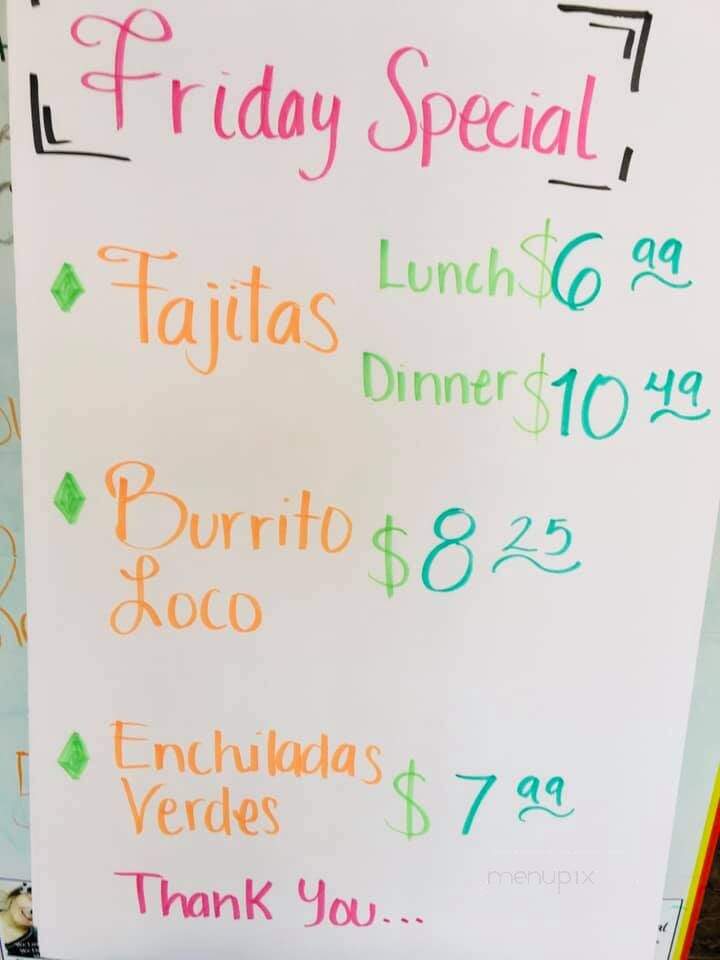 Friday Special
Fajitas Lunch $6 99
Dinner $10 49
Burrito $8 25
Loco
Enchiladas $7 99
Verdes
Thank You...
menupix